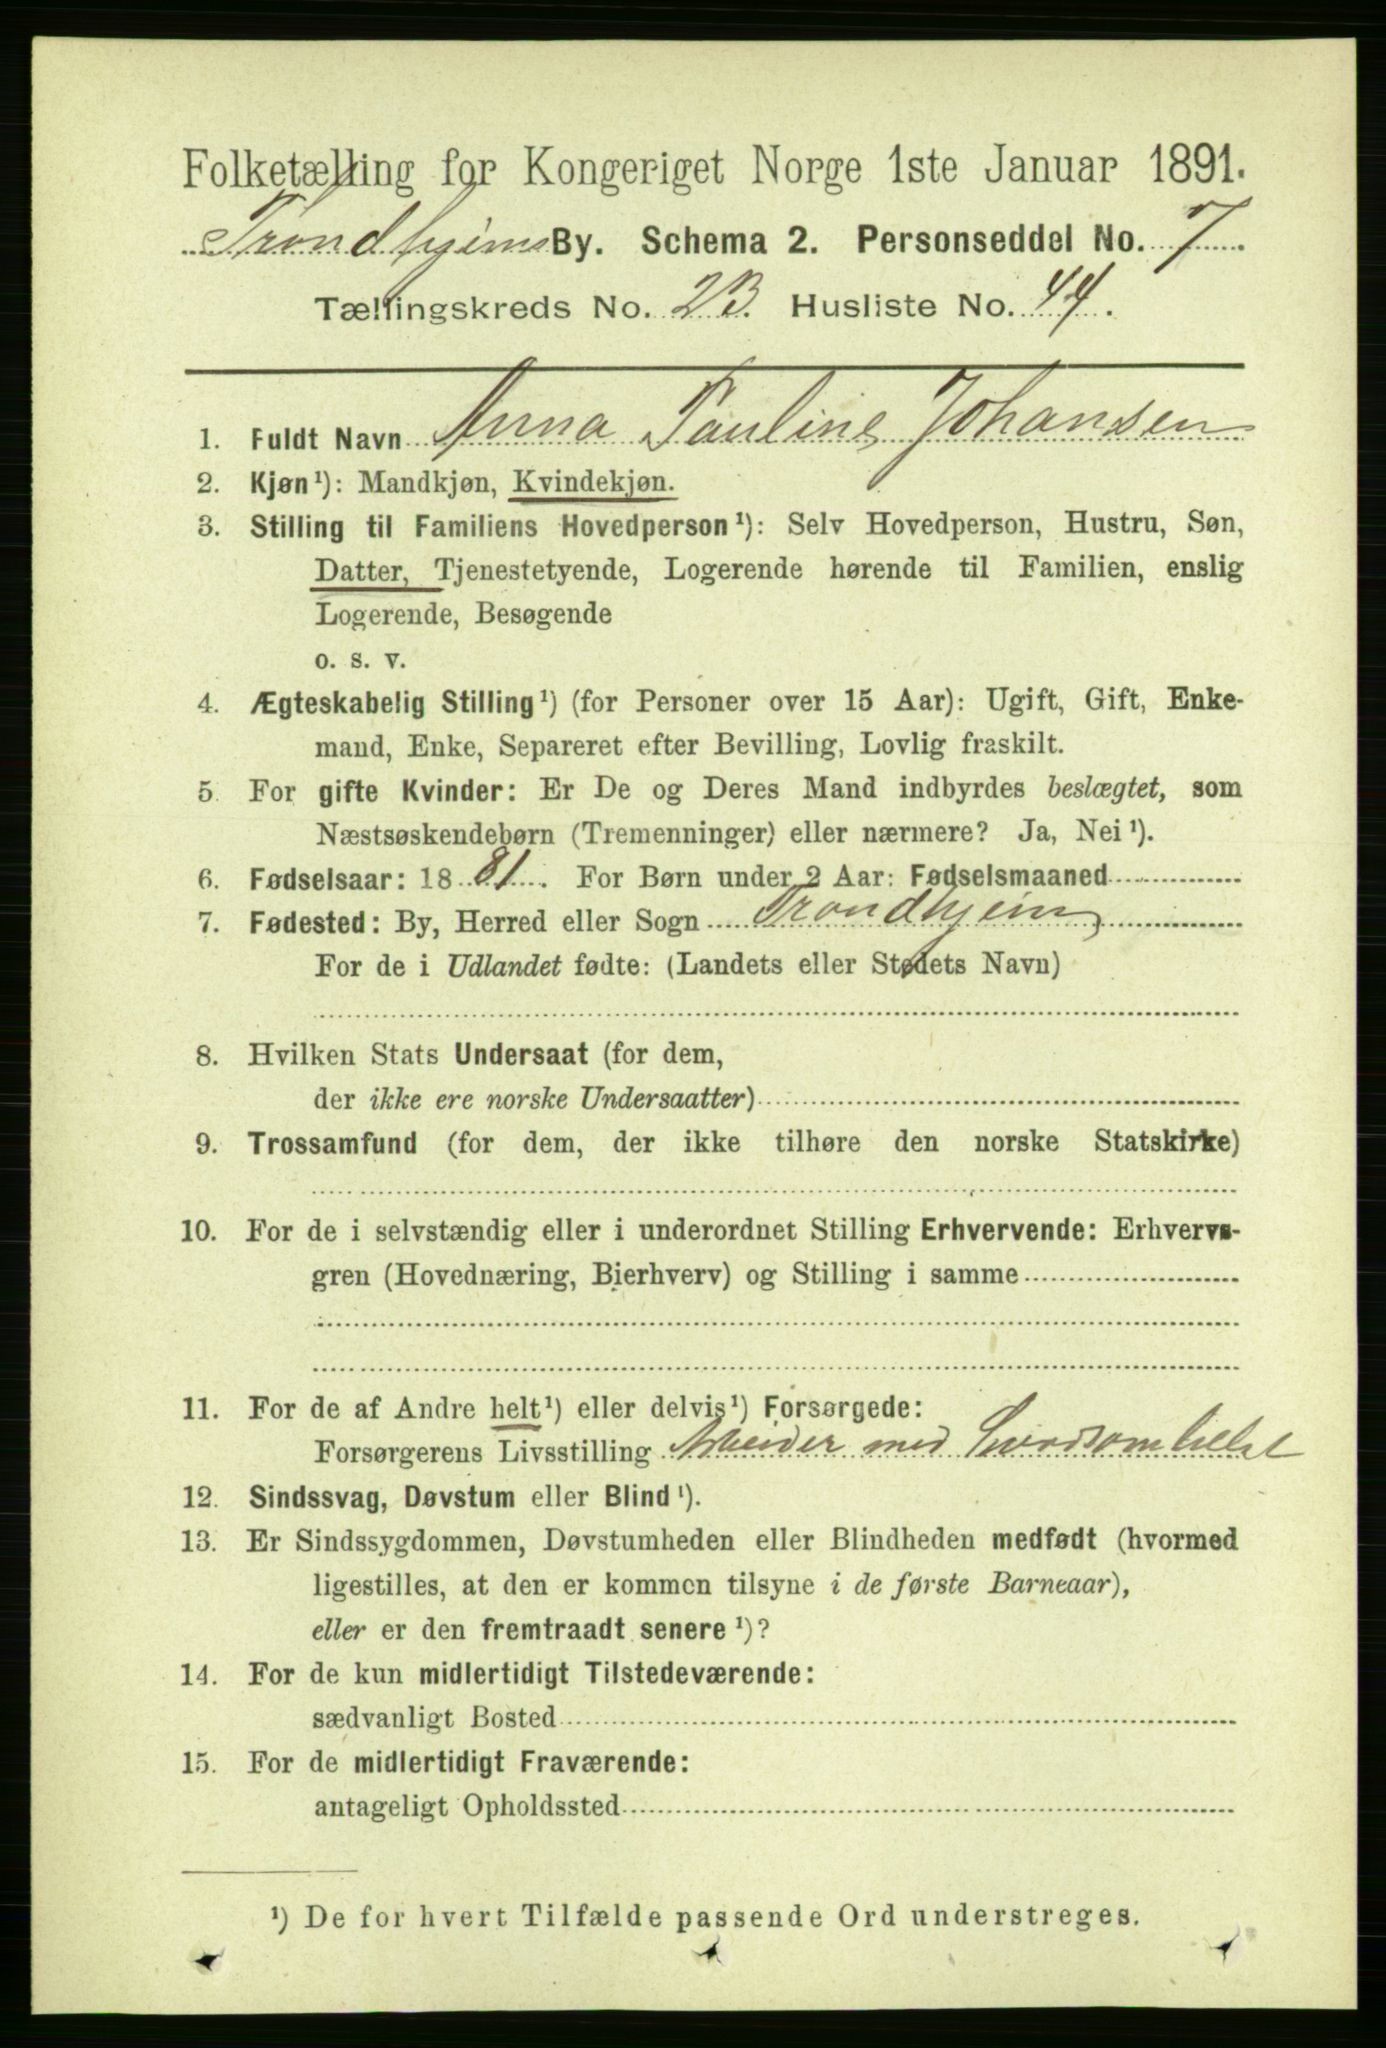 Folketælling for Kongeriget Norge 1ste Januar 1891.
Trondhjems By. Schema 2. Personseddel No. 7
Tællingskreds No. 23. Husliste No. 44.
1. Fuldt Navn Anna Pauline Johansen
2. Kjøn¹): Mandkjøn, Kvindekjøn.
3. Stilling til Familiens Hovedperson¹): Selv Hovedperson, Hustru, Søn,
Datter, Tjenestetyende, Logerende hørende til Familien, enslig
Logerende, Besøgende
o. s. v.
4. Ægteskabelig Stilling¹) (for Personer over 15 Aar): Ugift, Gift, Enke-
mand, Enke, Separeret efter Bevilling, Lovlig fraskilt.
5. For gifte Kvinder: Er De og Deres Mand indbyrdes beslægtet, som
Næstsøskendebørn (Tremenninger) eller nærmere? Ja, Nei¹).
6. Fødselsaar: 1881. For Børn under 2 Aar: Fødselsmaaned
7. Fødested: By, Herred eller Sogn Trondhjem
For de i Udlandet fødte: (Landets eller Stedets Navn)
8. Hvilken Stats Undersaat (for dem,
der ikke ere norske Undersaatter)
9. Trossamfund (for dem, der ikke tilhøre den norske Statskirke)
10. For de i selvstændig eller i underordnet Stilling Erhvervende: Erhvervs-
gren (Hovednæring, Bierhverv) og Stilling i samme
11. For de af Andre helt¹) eller delvis¹) Forsørgede:
Forsørgerens Livsstilling Arbeider med
12. Sindssvag, Døvstum eller Blind¹).
13. Er Sindssygdommen, Døvstumheden eller Blindheden medfødt (hvormed
ligestilles, at den er kommen tilsyne i de første Barneaar),
eller er den fremtraadt senere¹)?
14. For de kun midlertidigt Tilstedeværende:
sædvanligt Bosted
15. For de midlertidigt Fraværende:
antageligt Opholdssted
¹) De for hvert Tilfælde passende Ord understreges.